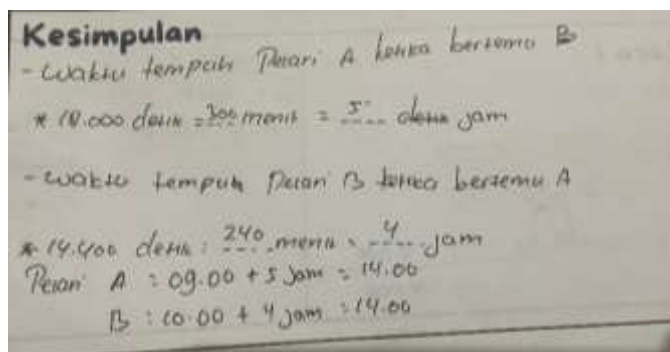 Kesimpulan
- Waktu tempuh Pelari A ketika bertemu B
* 18.000 detik = 300 menit = 5 jam
- Waktu tempuh Pelari B ketika bertemu A
* 14.400 detik = 240 menit = 4 jam
Pelari A : 09.00 + 5 jam = 14.00
B : 10.00 + 4 jam = 14.00